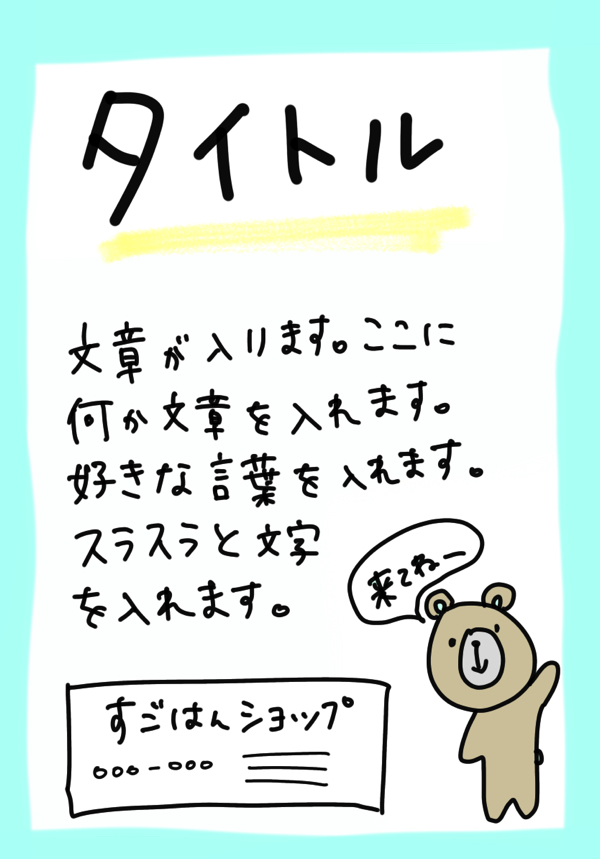 タイトル
文章が入ります。ここに
何か文章を入れます。
好きな言葉を入れます。
スラスラと文字
を入れます。
来てねー
すごはんショップ
ooo-ooo